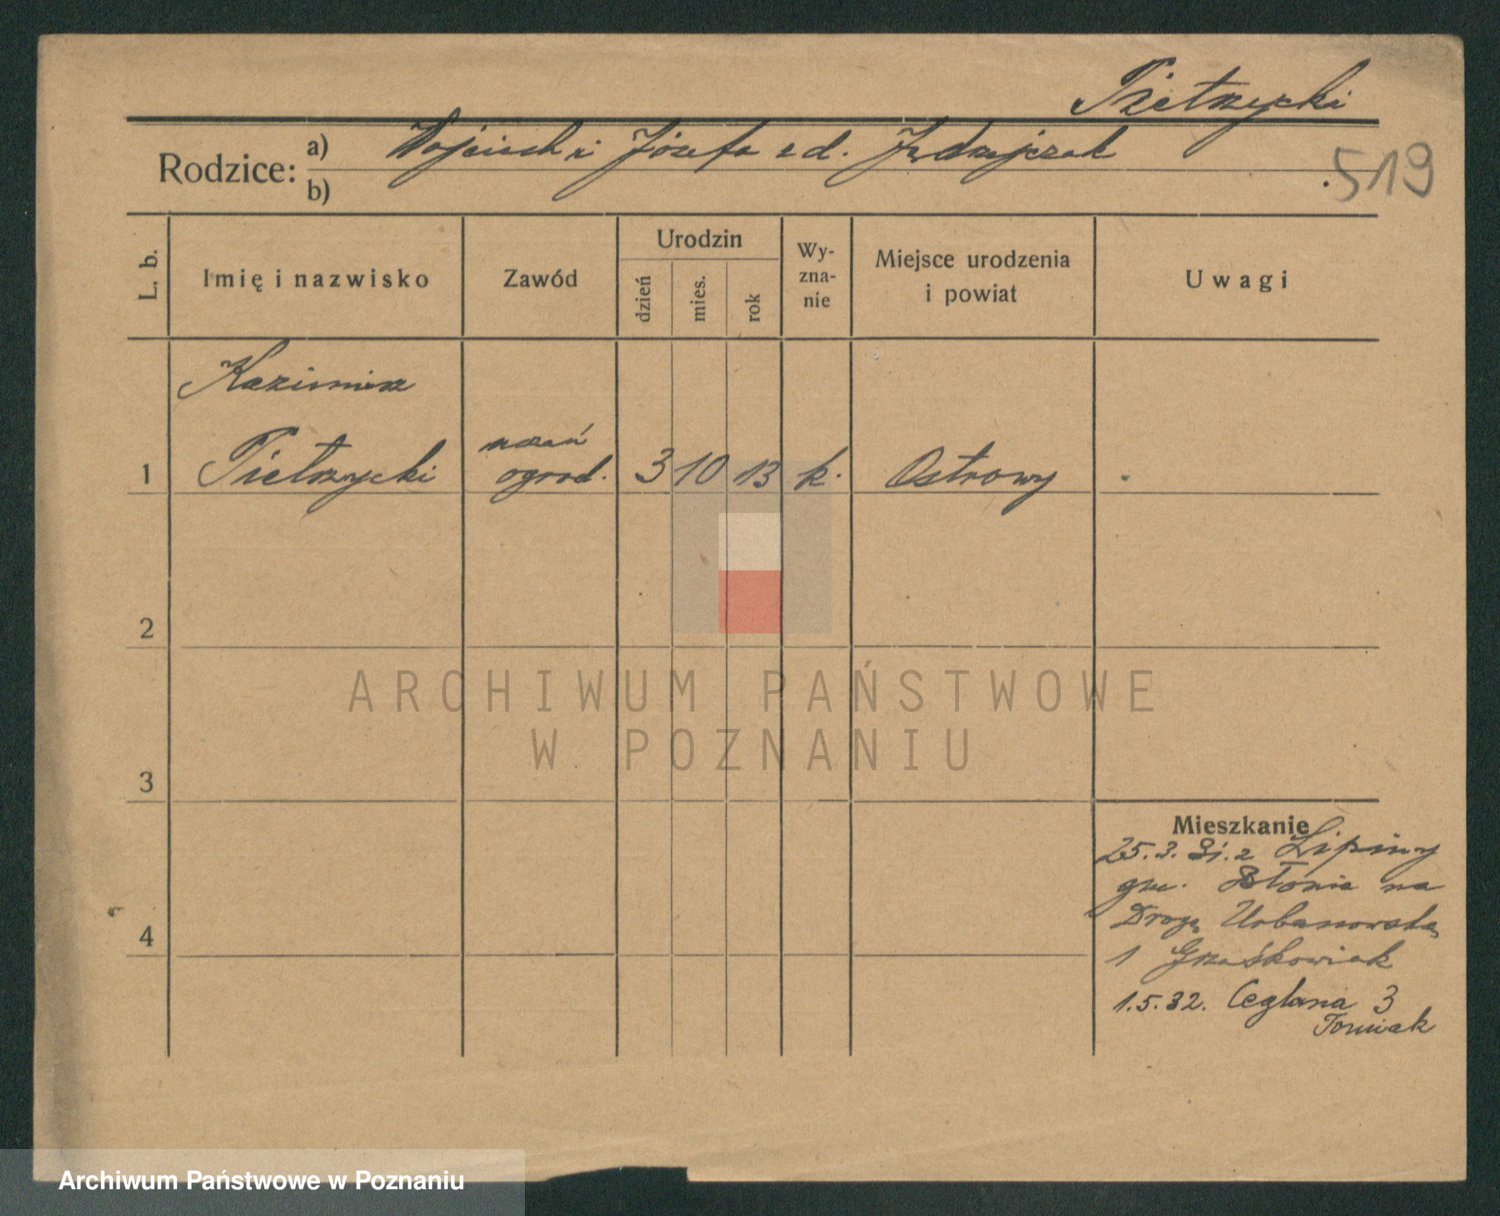 Pietrzycki
Rodzice: a) Wojciech i Józefa z d. Jędrzejczak
b)
519
L. b. Imię i nazwisko Zawód Urodzin dzień mies. rok Wy-zna-nie Miejsce urodzenia i powiat Uwagi
Kazimierz
uczeń
1 Pietrzycki ogrod. 3 10 13 k. Ostrowy
2
3
4
Mieszkanie
25.3. 31. z Lipiny
gm. Błonie na
Drogę Urbanowską
1 Graśkowiak
1.5.32. Ceglana 3
Tomiak
ARCHIWUM PAŃSTWOWE
W POZNANIU
Archiwum Państwowe w Poznaniu